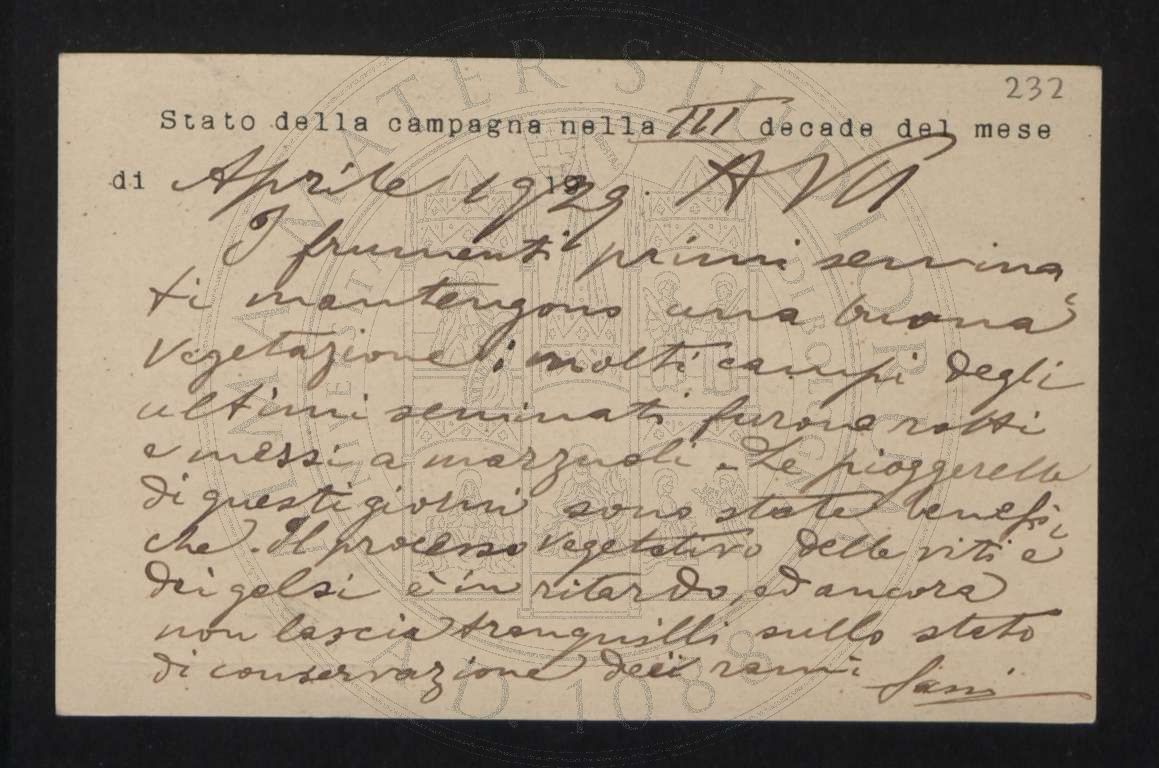 232
Stato della campagna nella III decade del mese
di Aprile 1929. A VII
I frumenti primi semina
ti mantengono una buona
vegetazione; molti campi degli
ultimi seminati furono rotti
e messi a marzuoli. Le pioggerelle
di questi giorni sono state benefi
che. Il processo vegetativo delle viti e
dei gelsi è in ritardo, ed ancora
non lascia tranquilli sullo stato
di conservazione dei rami